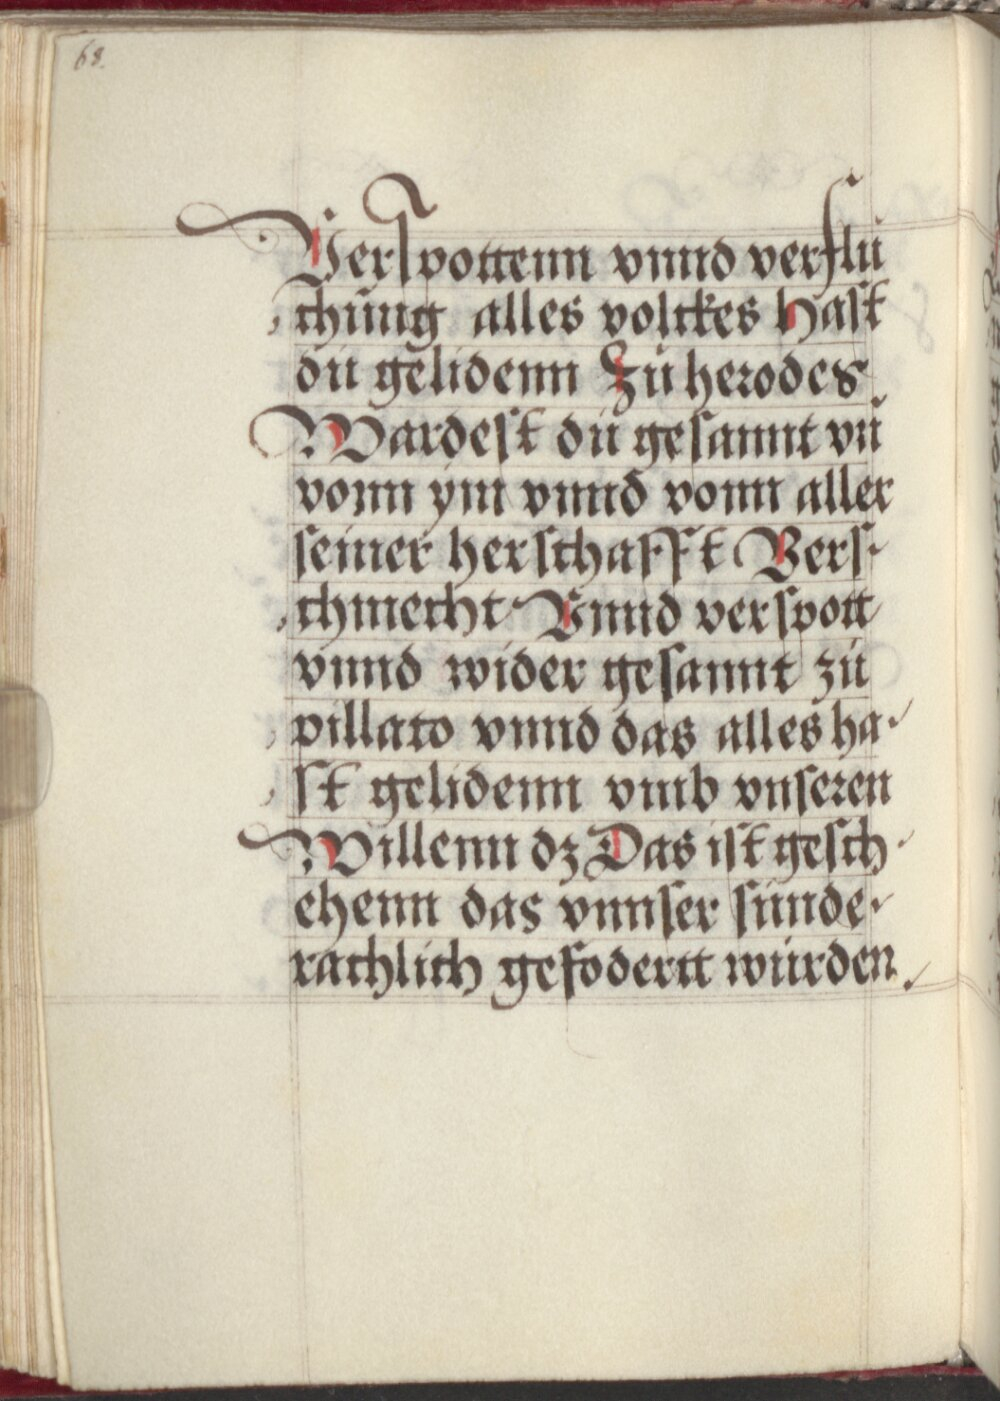 68.
Verspottenn vnnd verflu
chung alles volckes Hast
du gelidenn Zu herodes
Wardest du gesannt vn̄
vonn ym vnnd vonn aller
seiner herschafft Vers
chmecht Vnnd verspott
vnnd wider gesannt zu
pillato vnnd das alles ha
st gelidenn vmb vnseren
Willenn dz Das ist gesch
ehenn das vnnser sunde
rachlich gefodertt wurden